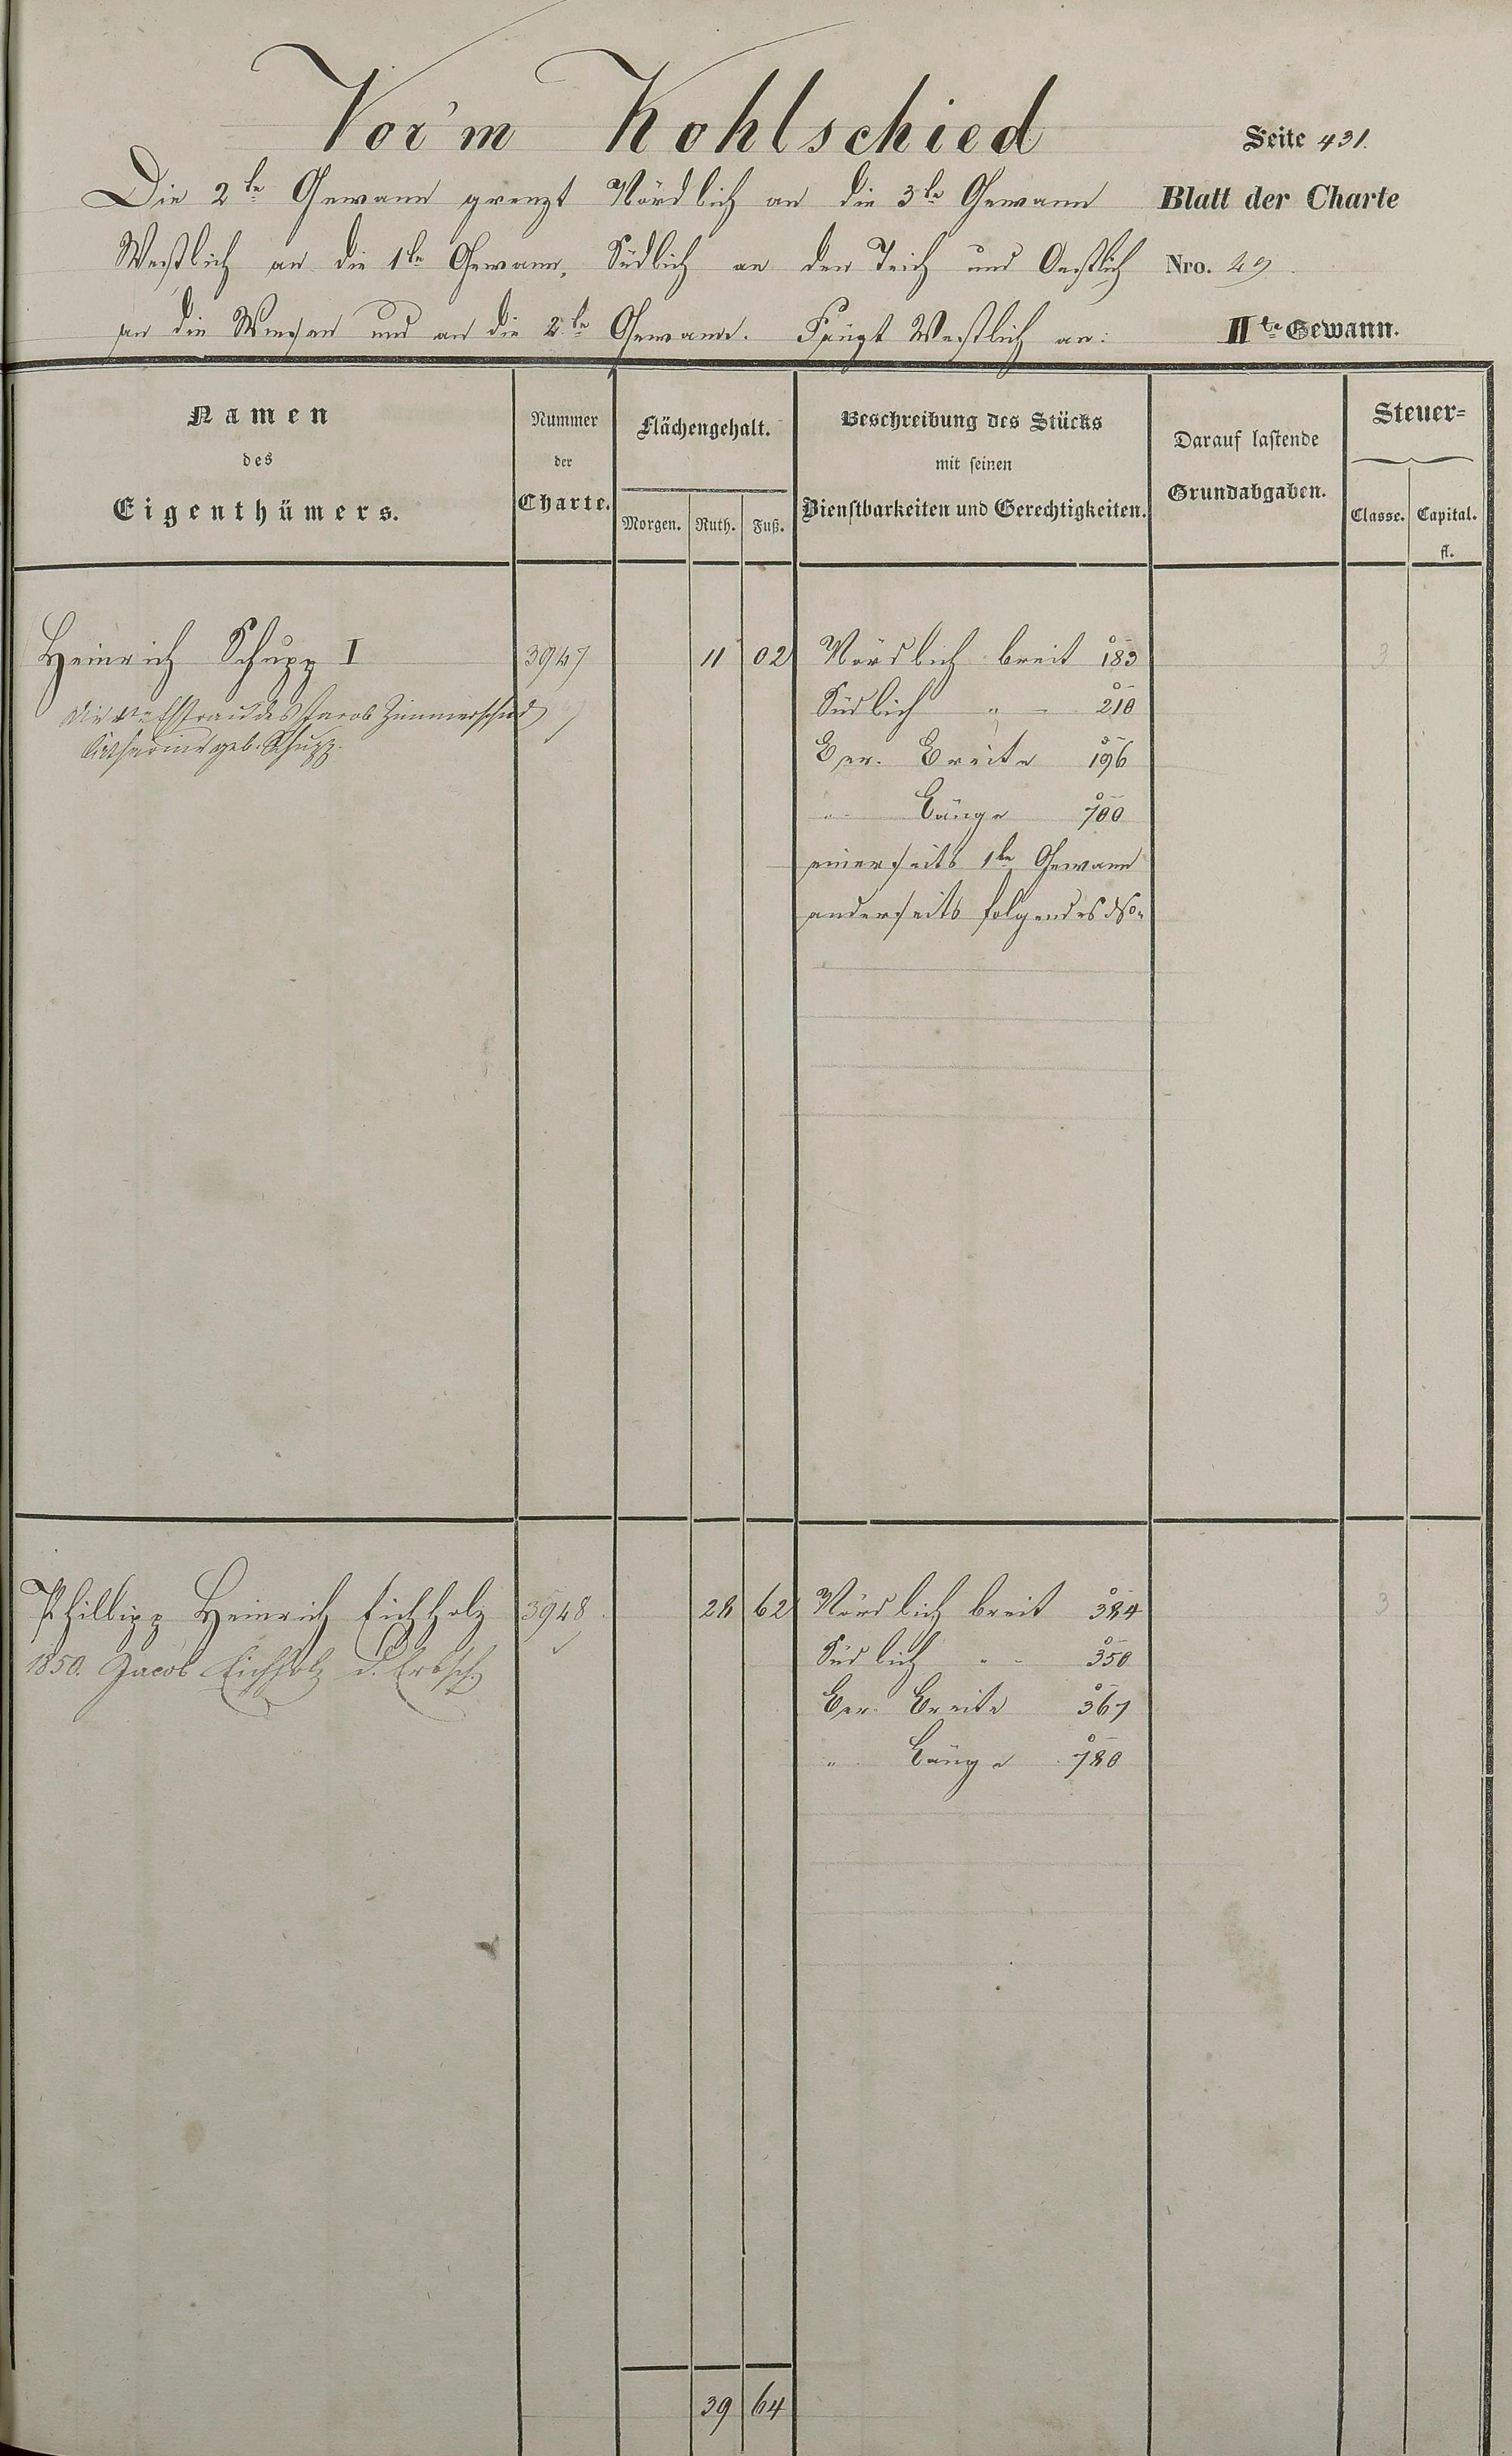 Vor'm Kohlschied
Seite 431.
Die 2te Gewann grenzt Nördlich an die 3te Gewann
Blatt der Charte
Westlich an die 1te Gewann, Südlich an den Teich und Oestlich
Nro. 29.
an die Wiesen und an die 2te Gewann. Fängt Westlich an:
IIte Gewann.
Namen
des
Eigenthümers.
Nummer
der
Charte.
Flächengehalt.
Morgen. Ruth. Fuß.
Beschreibung des Stücks
mit seinen
Dienstbarkeiten und Gerechtigkeiten.
Darauf lastende
Grundabgaben.
Steuer=
Classe. Capital.
fl.
Heinrich Schupp I 3947 11 02 Nördlich breit 183 3
Südlich " 210
Ehefrau des Jacob Zimmerschied
Catharine geb. Schupp.
Ger. Breite 196
" Länge 700
einerseits 1te Gewann
anderseits folgendes
Phillipp Heinrich Eichholz 3948 28 62 Nördlich breit 384 3
1850. Jacob Eichholz d. Erbsch.
Südlich " 350
Ger. Breite 367
" Länge 780
39 64